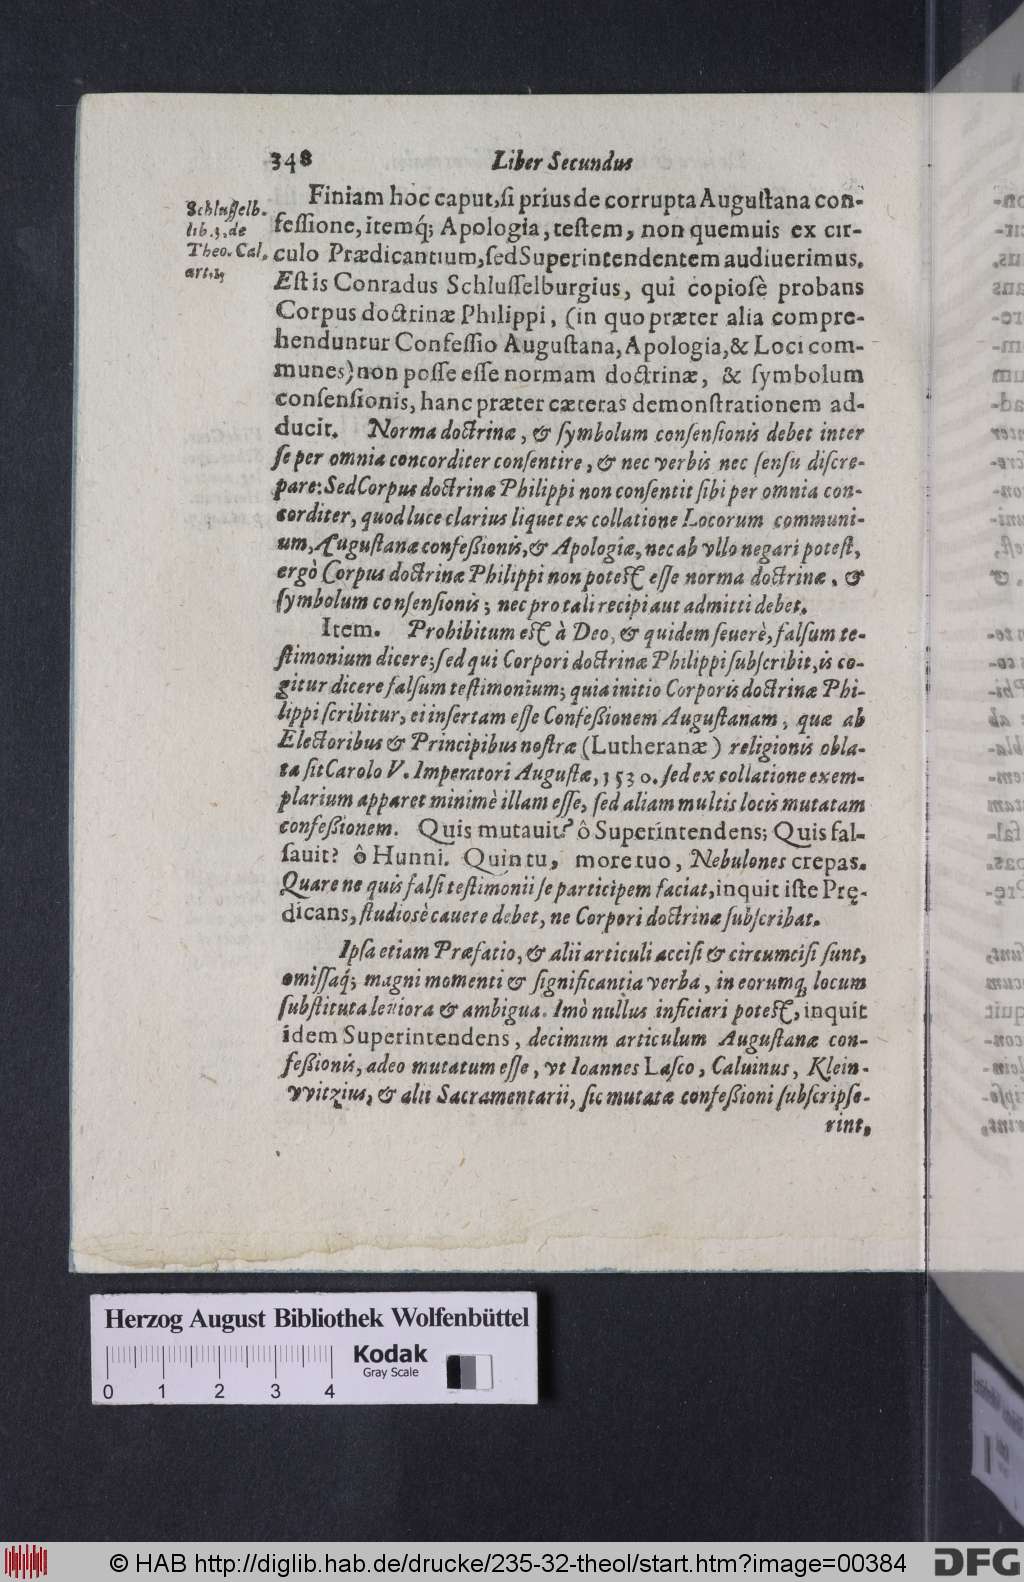 348 Liber Secundus
Schlusselb.
lib. 3. de
Theo. Cal.
Finiam hoc caput, si prius de corrupta Augustana con-
fessione, itemq́; Apologia, testem, non quemuis ex cir-
culo Prædicantium, sed Superintendentem audiuerimus.
Est is Conradus Schlusselburgius, qui copiosè probans
Corpus doctrinæ Philippi, (in quo præter alia compre-
henduntur Confessio Augustana, Apologia, & Loci com-
munes) non posse esse normam doctrinæ, & symbolum
consensionis, hanc præter cæteras demonstrationem ad-
ducit. Norma doctrinæ, & symbolum consensionis debet inter
se per omnia concorditer consentire, & nec verbis nec sensu discre-
pare: Sed Corpus doctrinæ Philippi non consentit sibi per omnia con-
corditer, quod luce clarius liquet ex collatione Locorum communi-
um, Augustanæ confeßionis, & Apologiæ, nec ab vllo negari potest,
ergò Corpus doctrinæ Philippi non potest esse norma doctrinæ, &
symbolum consensionis; nec pro tali recipi aut admitti debet.
Item. Prohibitum est à Deo, & quidem seuerè, falsum te-
stimonium dicere; sed qui Corpori doctrinæ Philippi subscribit, is co-
gitur dicere falsum testimonium; quia initio Corporis doctrinæ Phi-
lippi scribitur, ei insertam esse Confeßionem Augustanam, quæ ab
Electoribus & Principibus nostræ (Lutheranæ) religionis obla-
ta sit Carolo V. Imperatori Augustæ, 1530. sed ex collatione exem-
plarium apparet minimè illam esse, sed aliam multis locis mutatam
confeßionem. Quis mutauit? ô Superintendens; Quis fal-
sauit? ô Hunni. Quin tu, more tuo, Nebulones crepas.
Quare ne quis falsi testimonii se participem faciat, inquit iste Prę-
dicans, studiosè cauere debet, ne Corpori doctrinæ subscribat.
Ipsa etiam Præfatio, & alii articuli accisi & circumcisi sunt,
omissaq́; magni momenti & significantia verba, in eorumq́; locum
substituta leuiora & ambigua. Imò nullus inficiari potest, inquit
idem Superintendens, decimum articulum Augustanæ con-
feßionis, adeo mutatum esse, vt Ioannes Lasco, Caluinus, Klein-
vvitzius, & alii Sacramentarii, sic mutatæ confeßioni subscripse-
rint,
Herzog August Bibliothek Wolfenbüttel
Kodak
Gray Scale
0 1 2 3 4
© HAB http://diglib.hab.de/drucke/235-32-theol/start.htm?image=00384
DFG